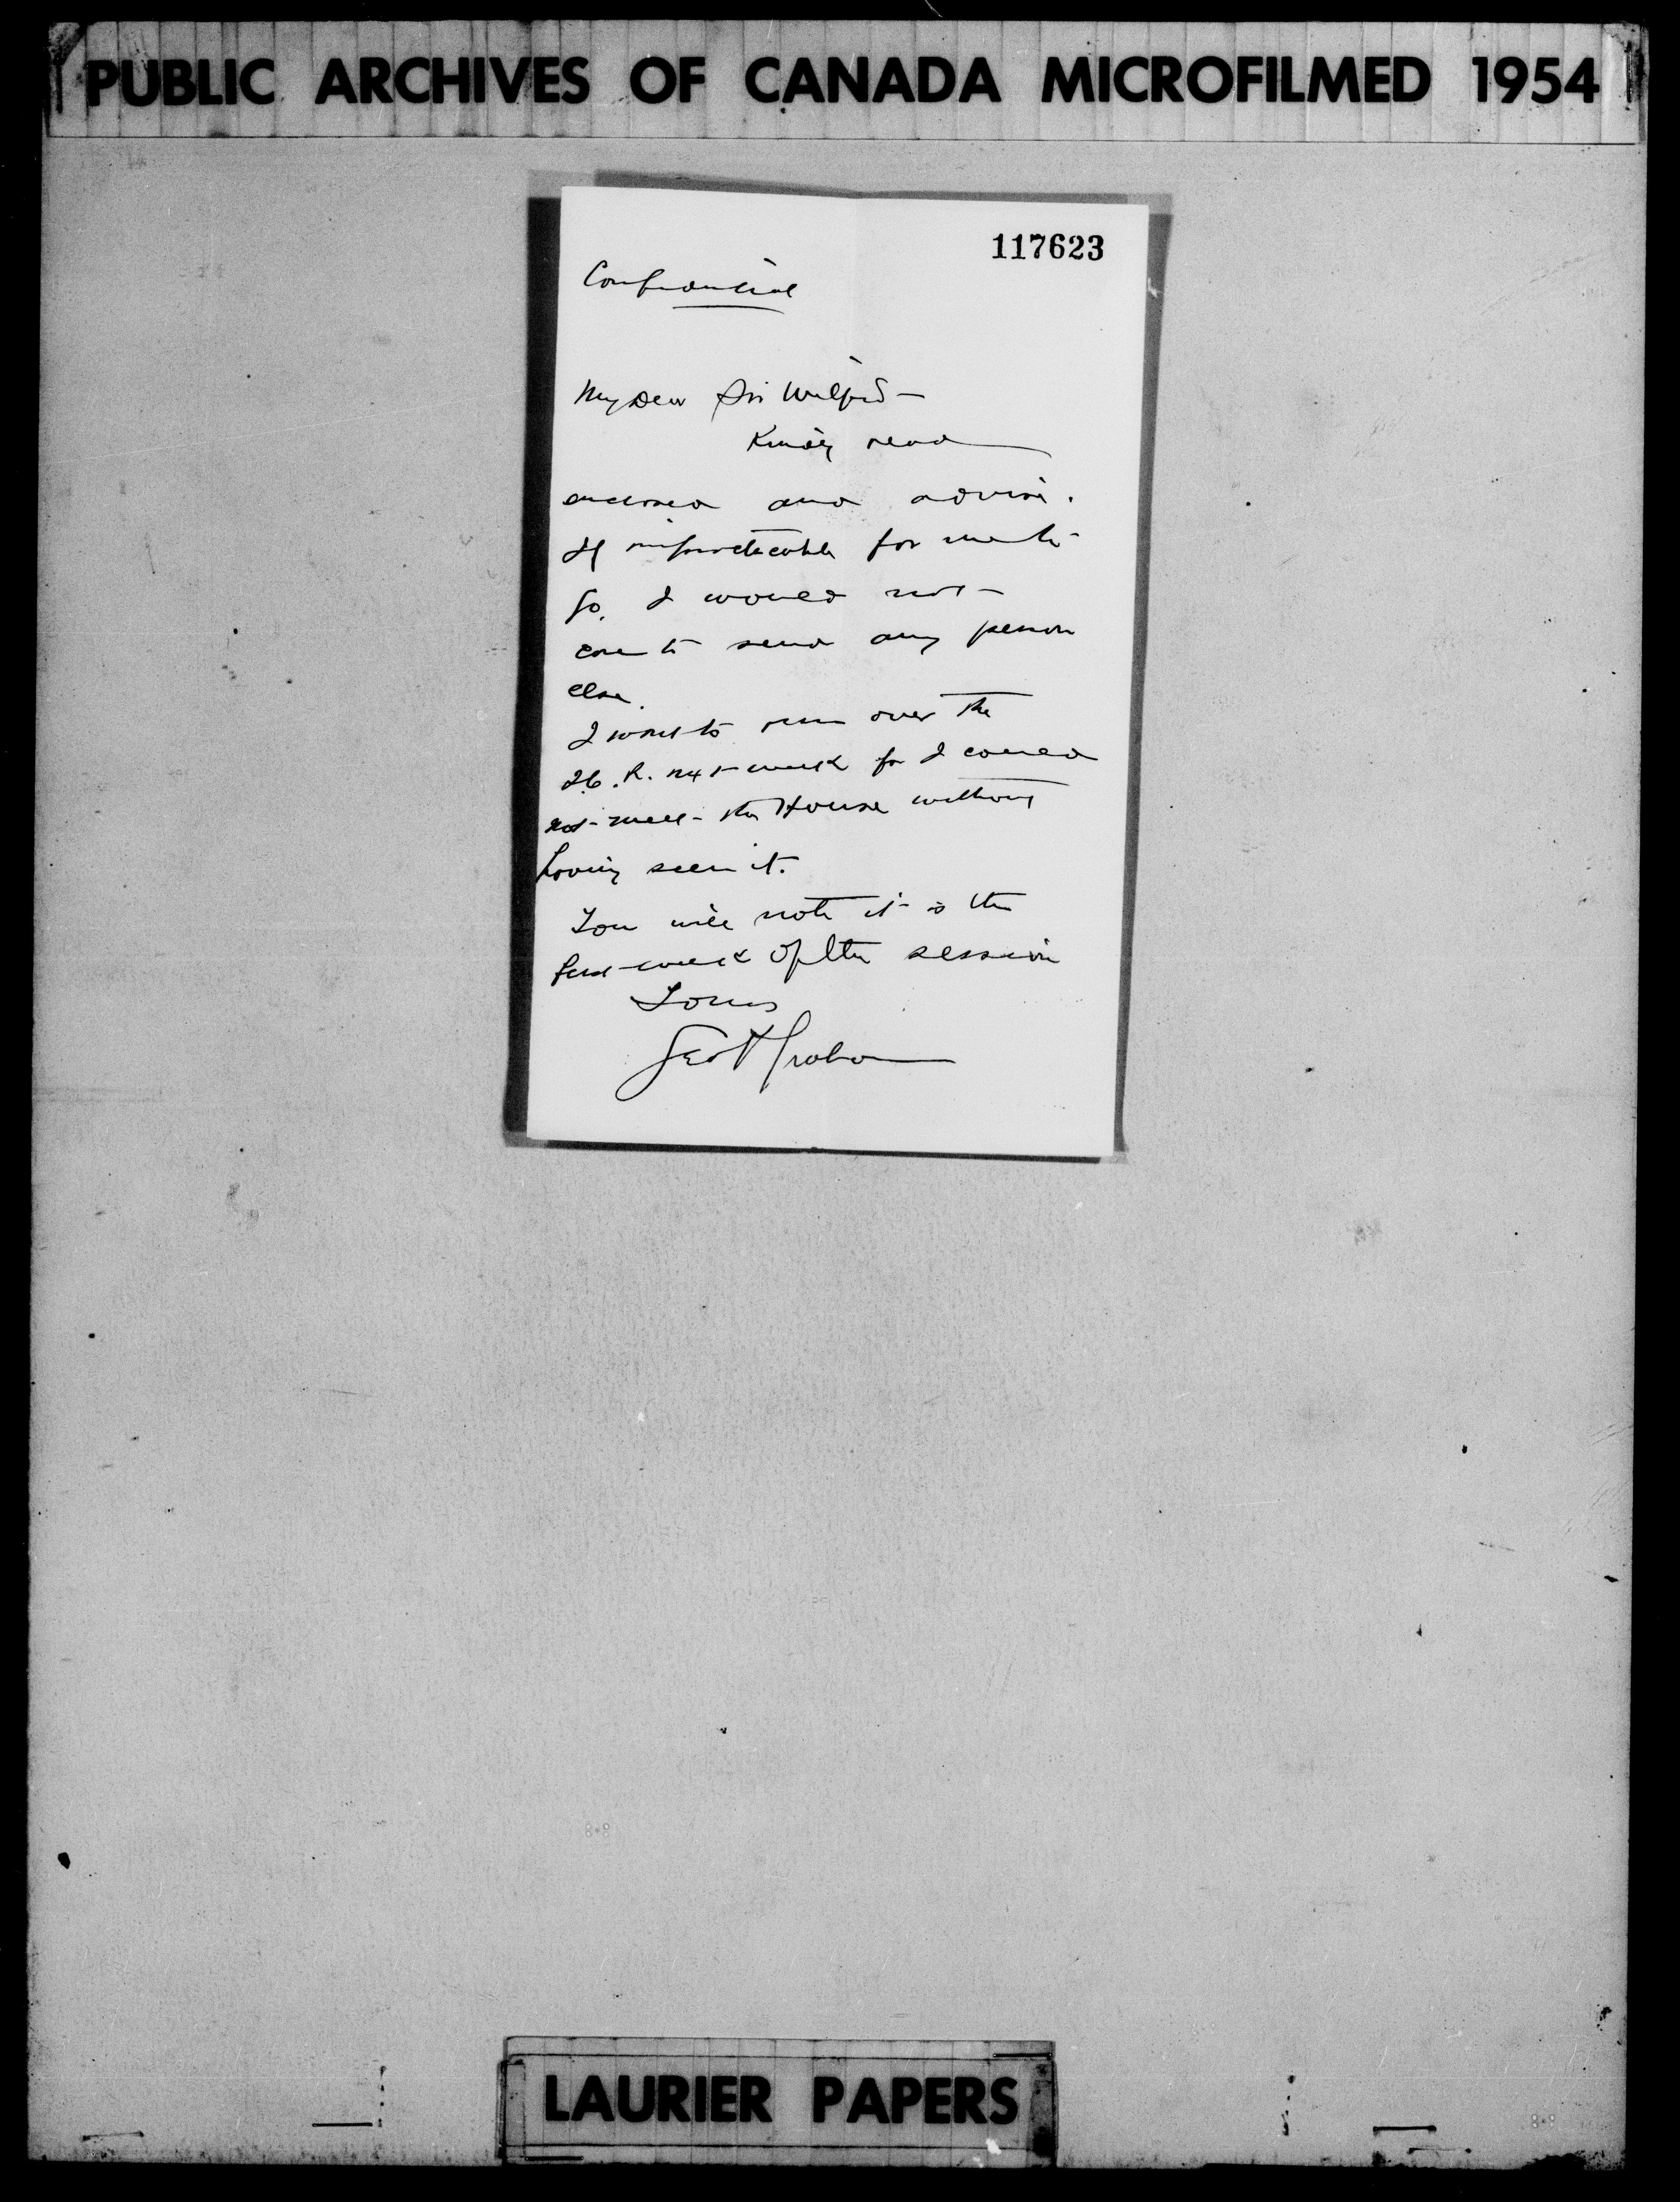 PUBLIC ARCHIVES OF CANADA MICROFILMED 1954
117623
Confidential
My Dear Sir Wilfrid -
Kindly read
enclosed and advise.
If impracticable for me to
go, I would not
care to send any person
else.
I want to run over the
I.C.R. next week for I could
not meet the House without
having seen it.
You will note it is the
first week of the session
Yours
Geo P Graham
LAURIER PAPERS